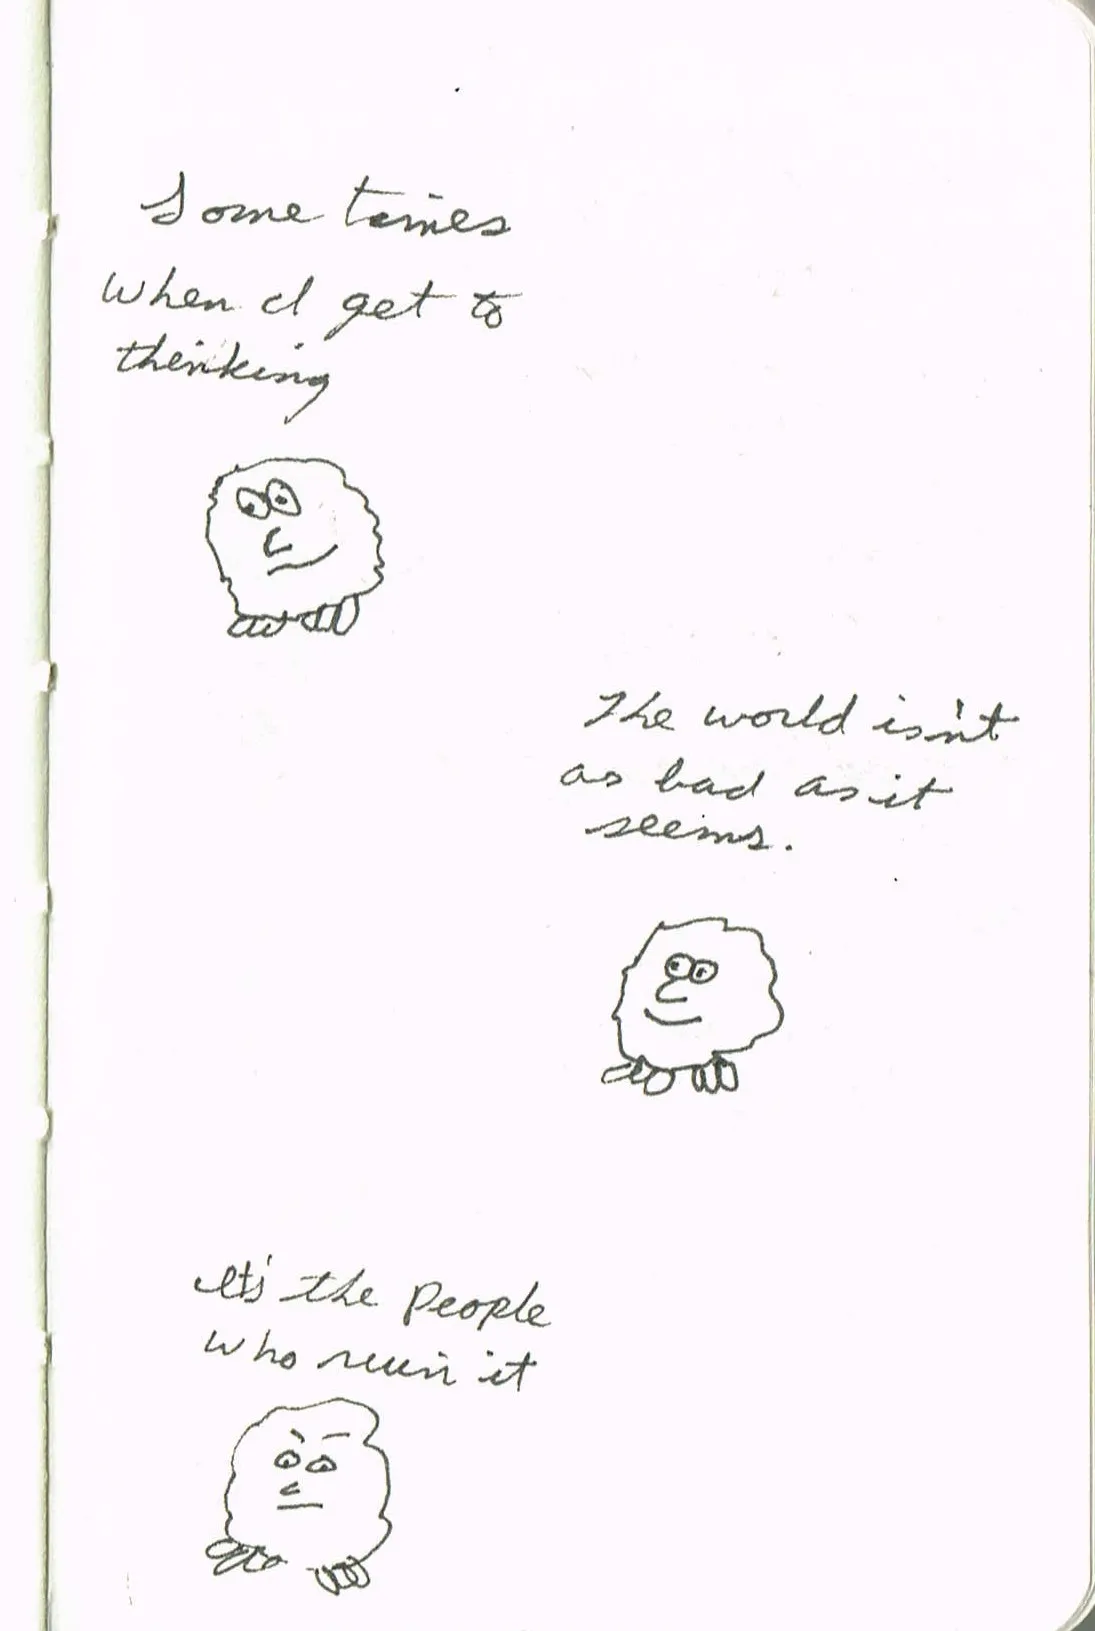 Some times
when I get to
thinking
The world isn't
as bad as it
seems.
It's the People
who ruin it